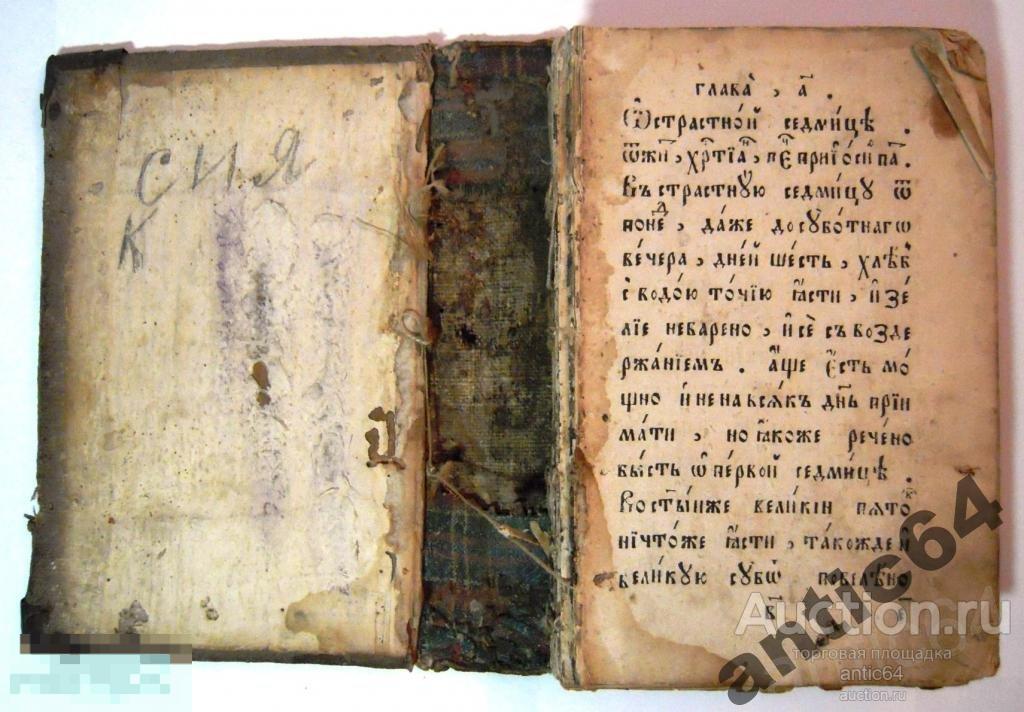 СИЯ
К
глава̀ , а҃ .
Ѡ҆страстно́й седми́цѣ .
Въстрастную седми́цу ѿ
понеⷣ , да́же досꙋбо́тнагѡ
ве́чера , дне́й ше́сть , хлѣ́б
с̾водо́ю то́чїю ꙗ҆сти , и҆ зе́
лїе неварено , и҆ сѐ съвозде
ржа́нїемъ . а҆ще є҆сть мо́
щно и҆ ненавсѧ́къ дн҃ь прїи
ма́ти , но ꙗ҆коже рече́но
бы́сть ѡ҆ пе́рвой седми́цѣ .
Восты́иже вели́кїи пѧто́
нїчто́же ꙗ҆сти , та́кожде и҆
вели́кую сꙋбѡ повелѣно
antic64
Auction.ru
торговая площадка
antic64
auction.ru